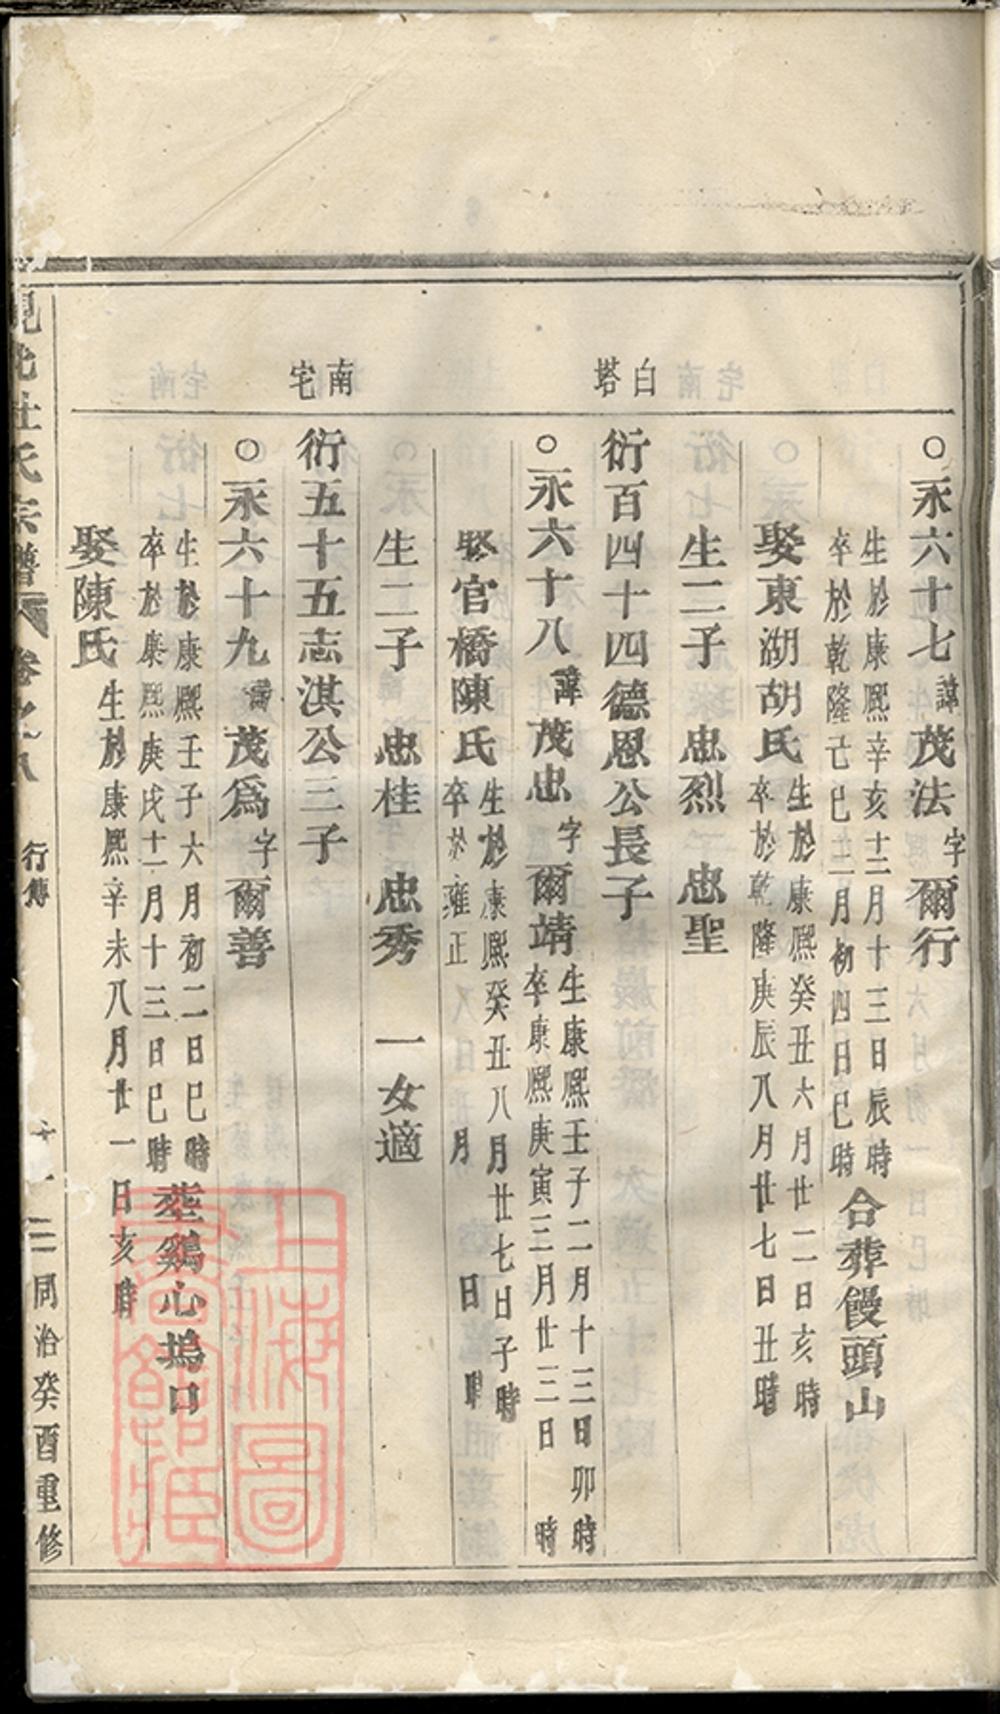 ○永六十七諱茂法字爾行
生於康熙辛亥十二月十三日辰時
卒於乾隆己巳二月初四日巳時
合葬饅頭山
娶東湖胡氏
生於康熙癸丑六月廿二日亥時
卒於乾隆庚辰八月廿七日丑時
生二子 忠烈 忠聖
白塔
衍百四十四德恩公長子
○永六十八諱茂忠字爾靖
生康熙壬子二月十三日卯時
卒康熙庚寅三月廿三日 時
娶官橋陳氏
生於康熙癸丑八月廿七日子時
卒於雍正 月 日 時
生二子 忠桂 忠秀 一女適
南宅
衍五十五志淇公三子
○永六十九諱茂為字爾善
生於康熙壬子六月初二日巳時
卒於康熙庚戌十一月十三日巳時
葬鷄心塢口
娶陳氏
生於康熙辛未八月廿一日亥時
杜氏宗譜 卷之八 行傳 十一 同治癸酉重修
上海圖書館藏